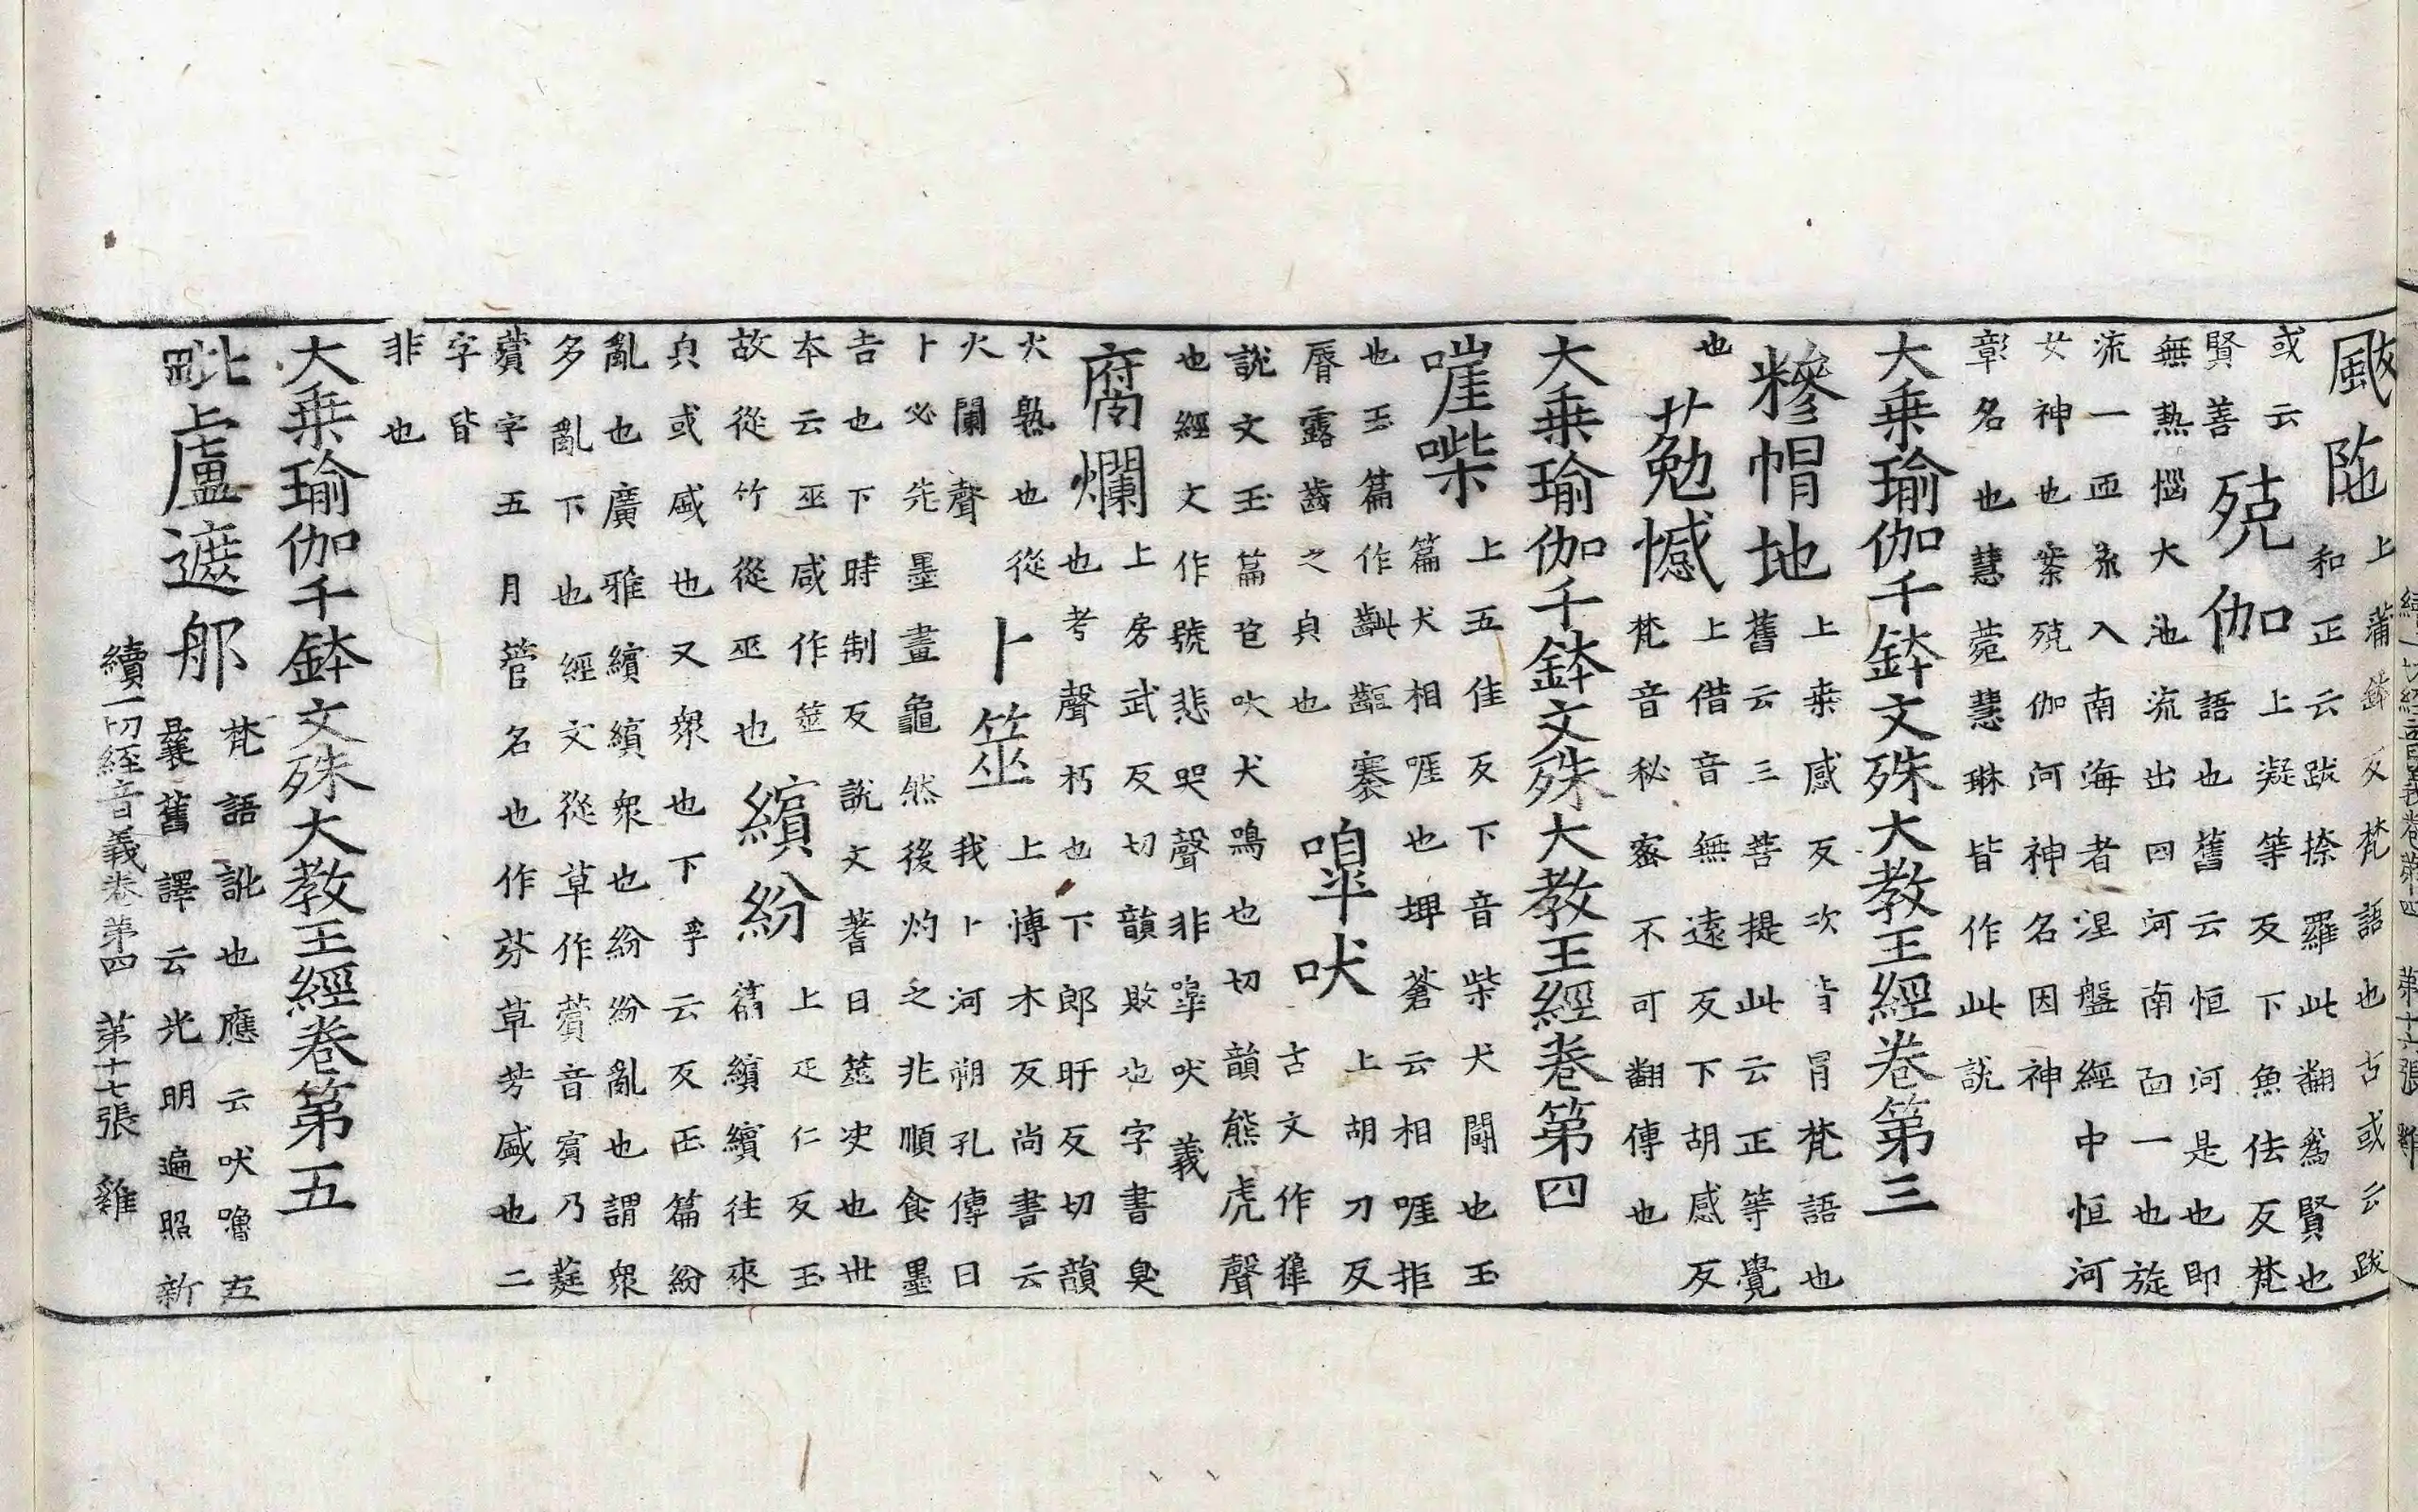 颰陁上蒲鉢反梵語也古或云跋
和正云跋捺羅此翻爲賢也
或云
賢善
殑伽上凝等反下魚佉反梵
語也舊云恒河是也即
無熱惱大池流出四河南面一也旋
流一匝入南海者涅盤經中恒河
女神也案殑伽河神名因神
彰名也慧菀慧琳皆作此説
大乗瑜伽千鉢文殊大教王經卷第三
糝帽地上桒感反次皆冒梵語也
舊云三菩提此云正等覺
也
憾上借音無遠反下胡感反
梵音秘密不可翻傳也
大乗瑜伽千鉢文殊大教王經卷第四
嘊喍上五佳反下音柴犬鬪也玉
篇犬相啀也埤蒼云相啀拒
也玉篇作齜齵褰
脣露齒之皃也
嘷吠上胡刀反
古文作獋
説文玉篇吠犬鳴也切韻熊虎聲
也經文作號悲哭聲非嘷吠義
腐爛上房武反切韻敗也字書臭
也考聲朽也下郎旰反切韻
火熟也從
火闌聲
卜筮上博木反尚書云
我卜河朔孔傳曰
卜必先墨畫龜然後灼之兆順食墨
吉也下時制反説文蓍曰筮史也世
本云巫咸作筮
故從竹從巫也
繽紛上疋仁反玉
篇繽繽往來
皃或盛也又衆也下孚云反玉篇紛
亂也廣雅繽繽衆也紛紛亂也謂衆
多亂下也經文從草作薲音賔乃莚
薲字五月管名也作芬草芳盛也二
字皆
非也
大乗瑜伽千鉢文殊大教王經卷第五
毗盧遮郍梵語訛也應云吠嚕左
曩舊譯云光明遍照新
續一切經音義卷第四 第十七張 雞